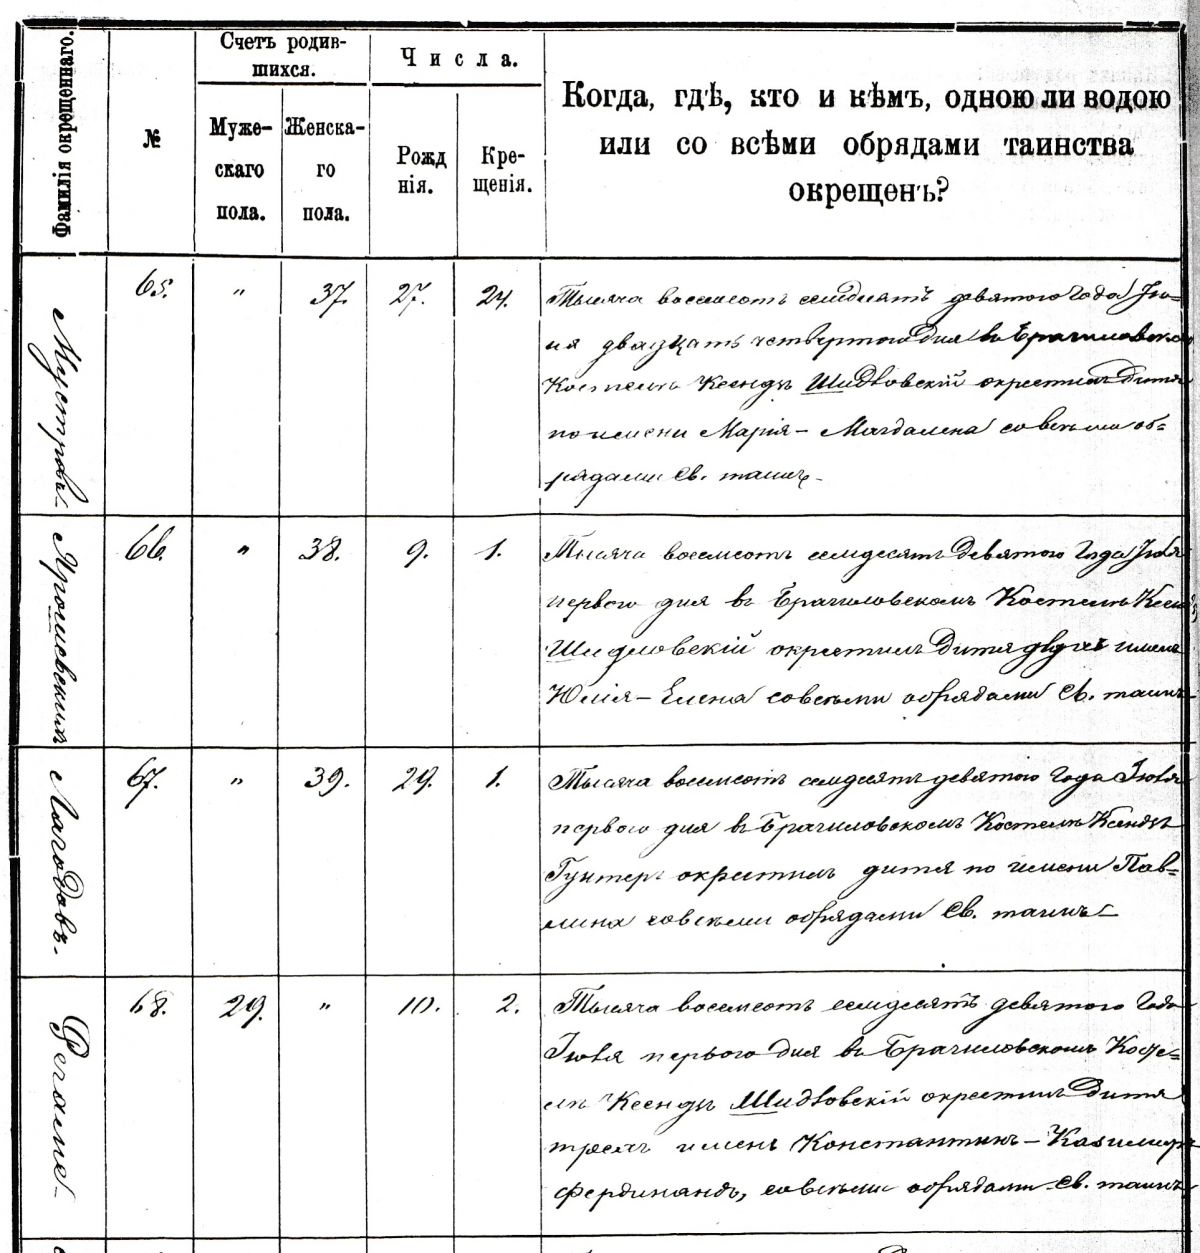 Фамилія окрещеннаго.
№
Счетъ родив-
шихся.
Муже-
скаго
пола.
Женска-
го
пола.
Числа.
Рожд
нія.
Кре-
щенія.
Когда, гдѣ, кто и кѣмъ, одною ли водою
или со всѣми обрядами таинства
окрещенъ?
Мустровъ
65.
"
37.
27.
24.
Тысяча восемсотъ семдесятъ девятого Года Ію=
ня двадцать четвертого дня въ Брагиловско
Костелѣ Ксендзъ Шидловскій окрестилъ дитя
по имени Марія – Магдалена со всѣми об=
рядами св. таин.
Ярошевскимъ
66.
"
38.
9.
1.
Тысяча восемсотъ семдесятъ девятого Года Іюля
первого дня въ Брагиловскомъ Костелѣ Ксен
Шидловскій окрестилъ дитя двухъ имена
Юлія – Елена со всѣми обрядами св. таинъ
Лагодовъ.
67.
"
39.
29.
1.
Тысяча восемсотъ семдесятъ девятого Года Іюля
первого дня въ Брагиловскомъ Костелѣ Ксендзъ
Гунтеръ окрестилъ дитя по имени Пав=
лина со всѣми обрядами св. таинъ
68.
29.
"
10.
2.
Тысяча восемсотъ семдесятъ девятого Года
Іюля первого дня въ Брагиловскомъ Косте-
лѣ Ксендзъ Шидловскій окрестилъ дитя
трехъ именъ Константинъ – Казимиръ
Фердинандъ, со всѣми обрядами св. таинъ